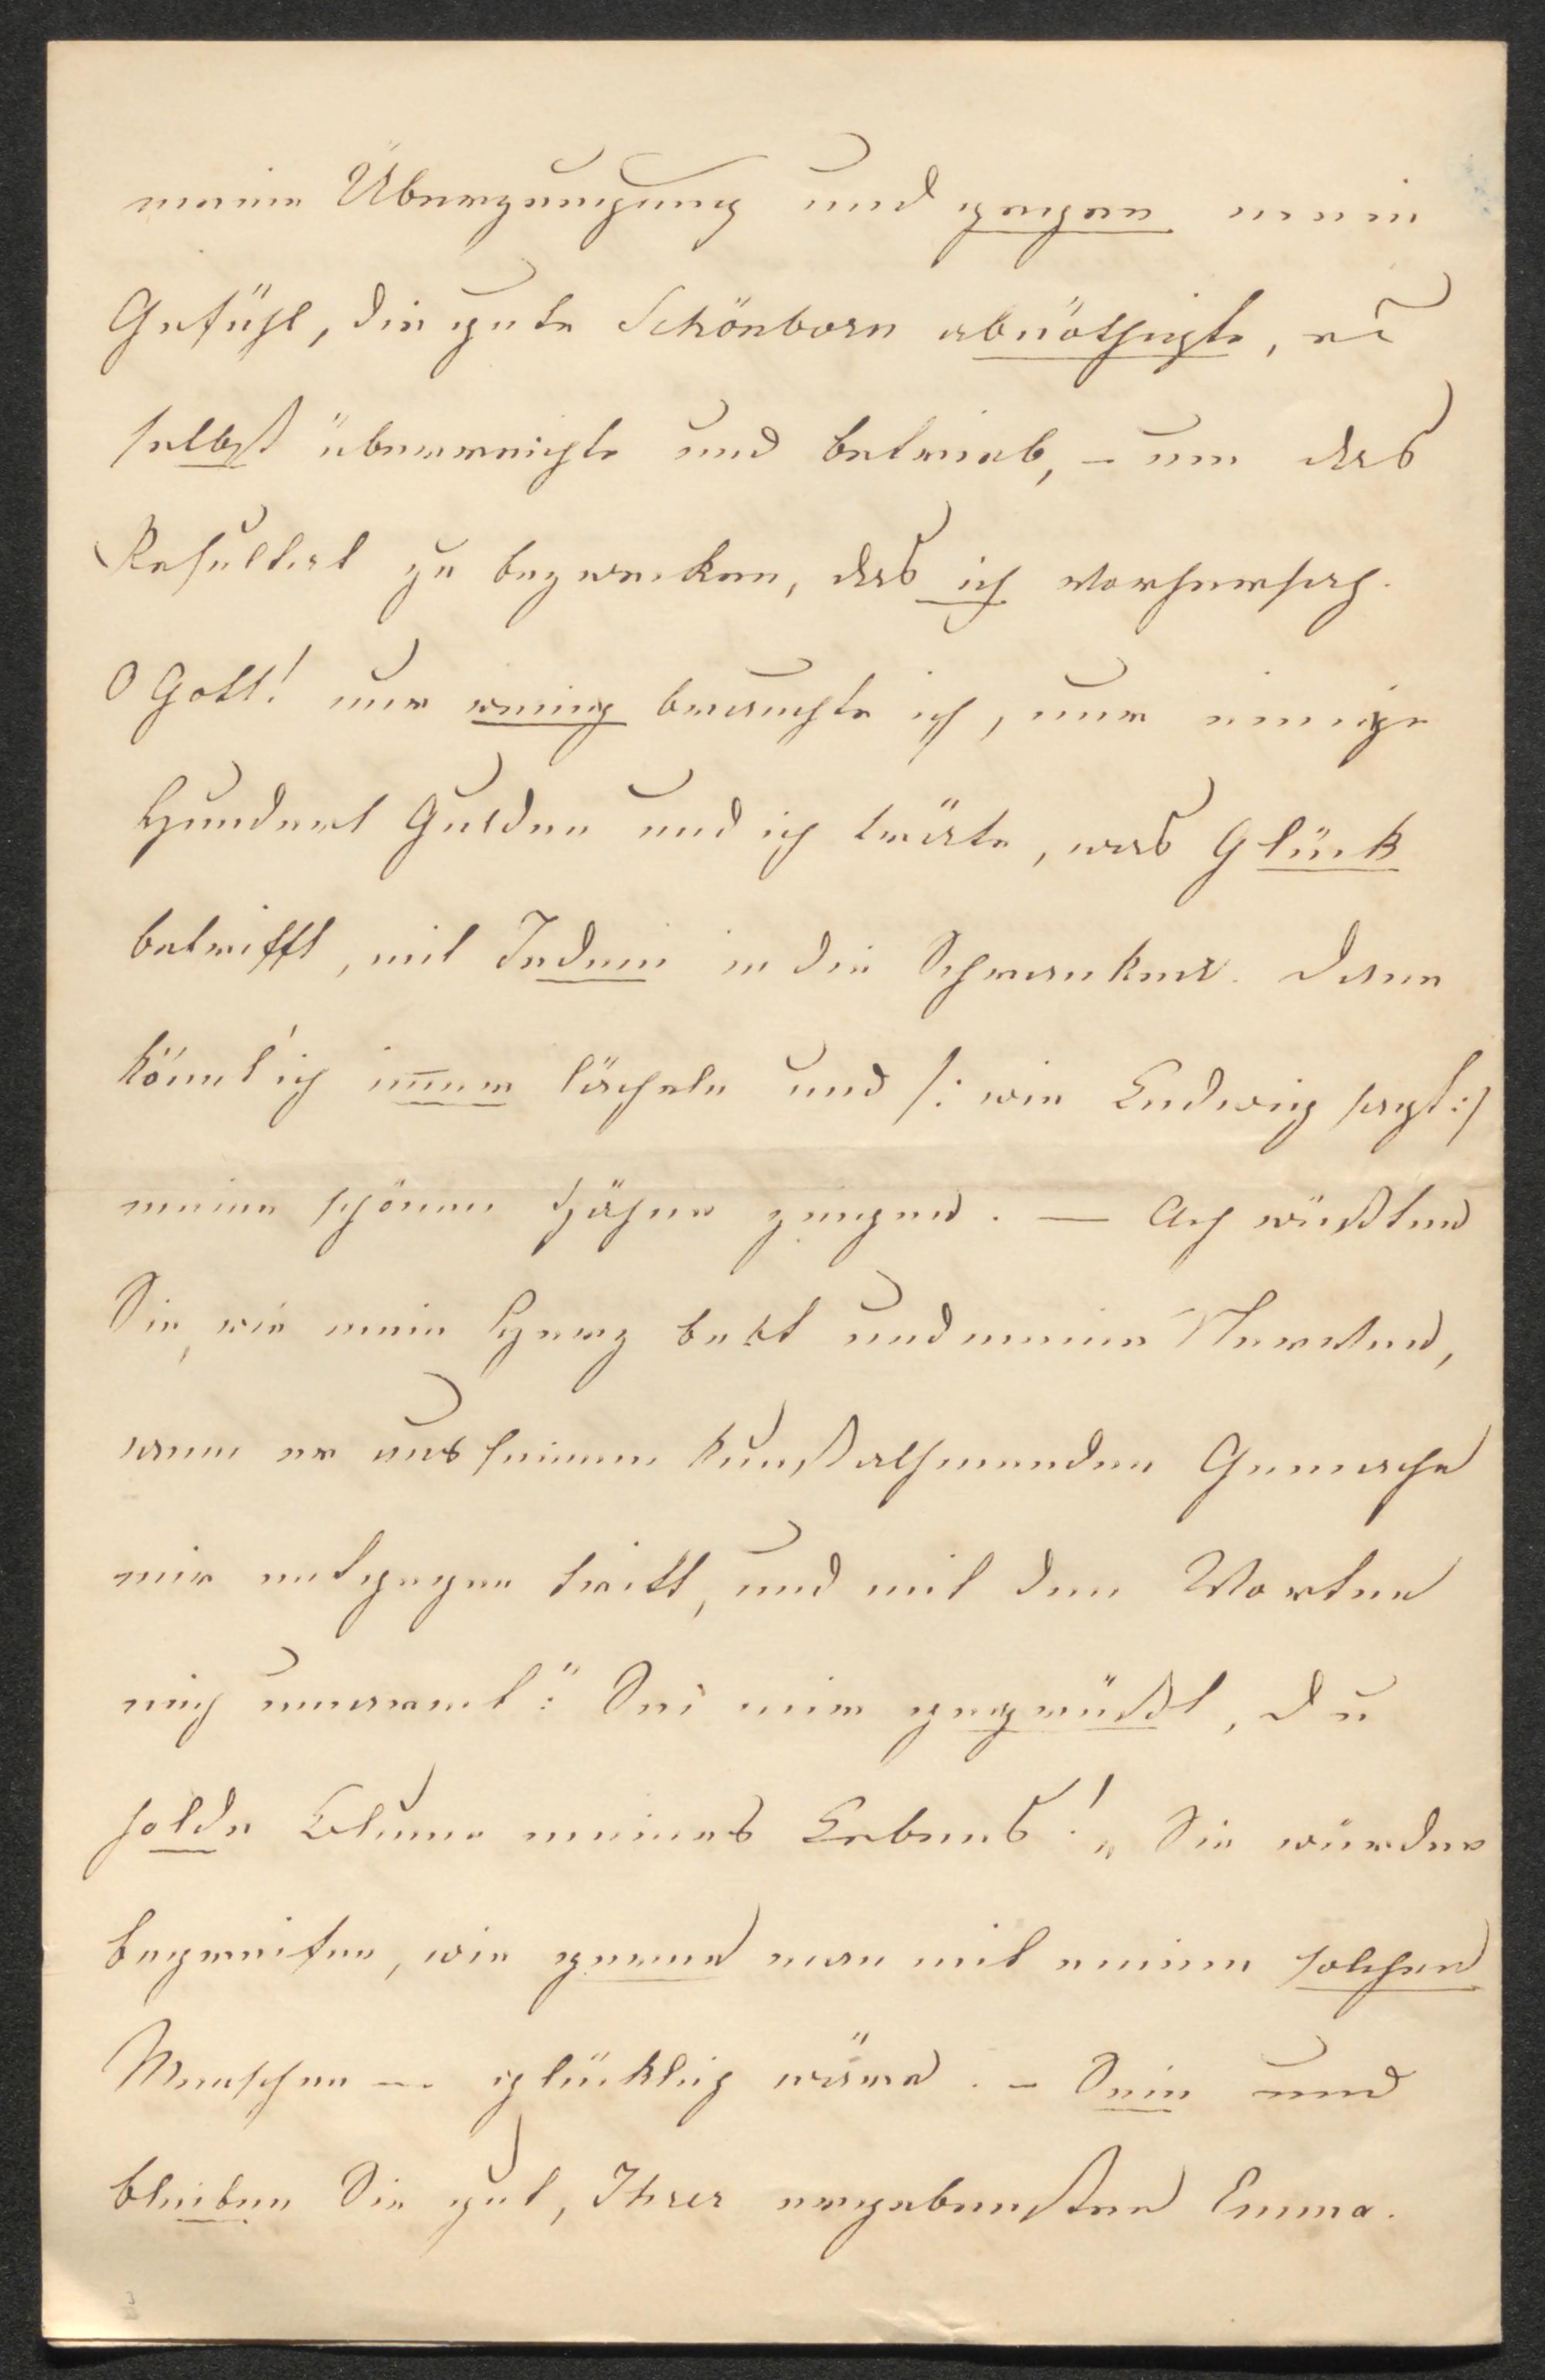 meine Überzeugung und gegen mein
Gefühl, die gute Schönborn abnöthigte, es
selbst überreichte und betrieb, – um das
Resultat zu bezwecken, das ich vorhersah.
O Gott! nur wenig brauchte ich, nur einige
Hundert Gulden und ich träte, was Glück
betrifft, mit Jedem in die Schranken. Dann
könnt' ich immer lächeln und /: wie Ludwig sagt :/
meine schönen Zähne zeigen. — Ach wüßten
Sie, wie mein Herz bebt und meine Nerven,
wenn er aus seinem kunstathmenden Gemache
mir entgegen tritt, und mit den Worten
mich umarmt: "Sei mir gegrüßt, du
holde Blume meines Lebens!„ Sie würden
begreifen, wie gerne man mit einem solchen
Menschen — glücklich wäre. – Sein und
bleiben Sie gut, Ihrer ergebensten Emma.
3